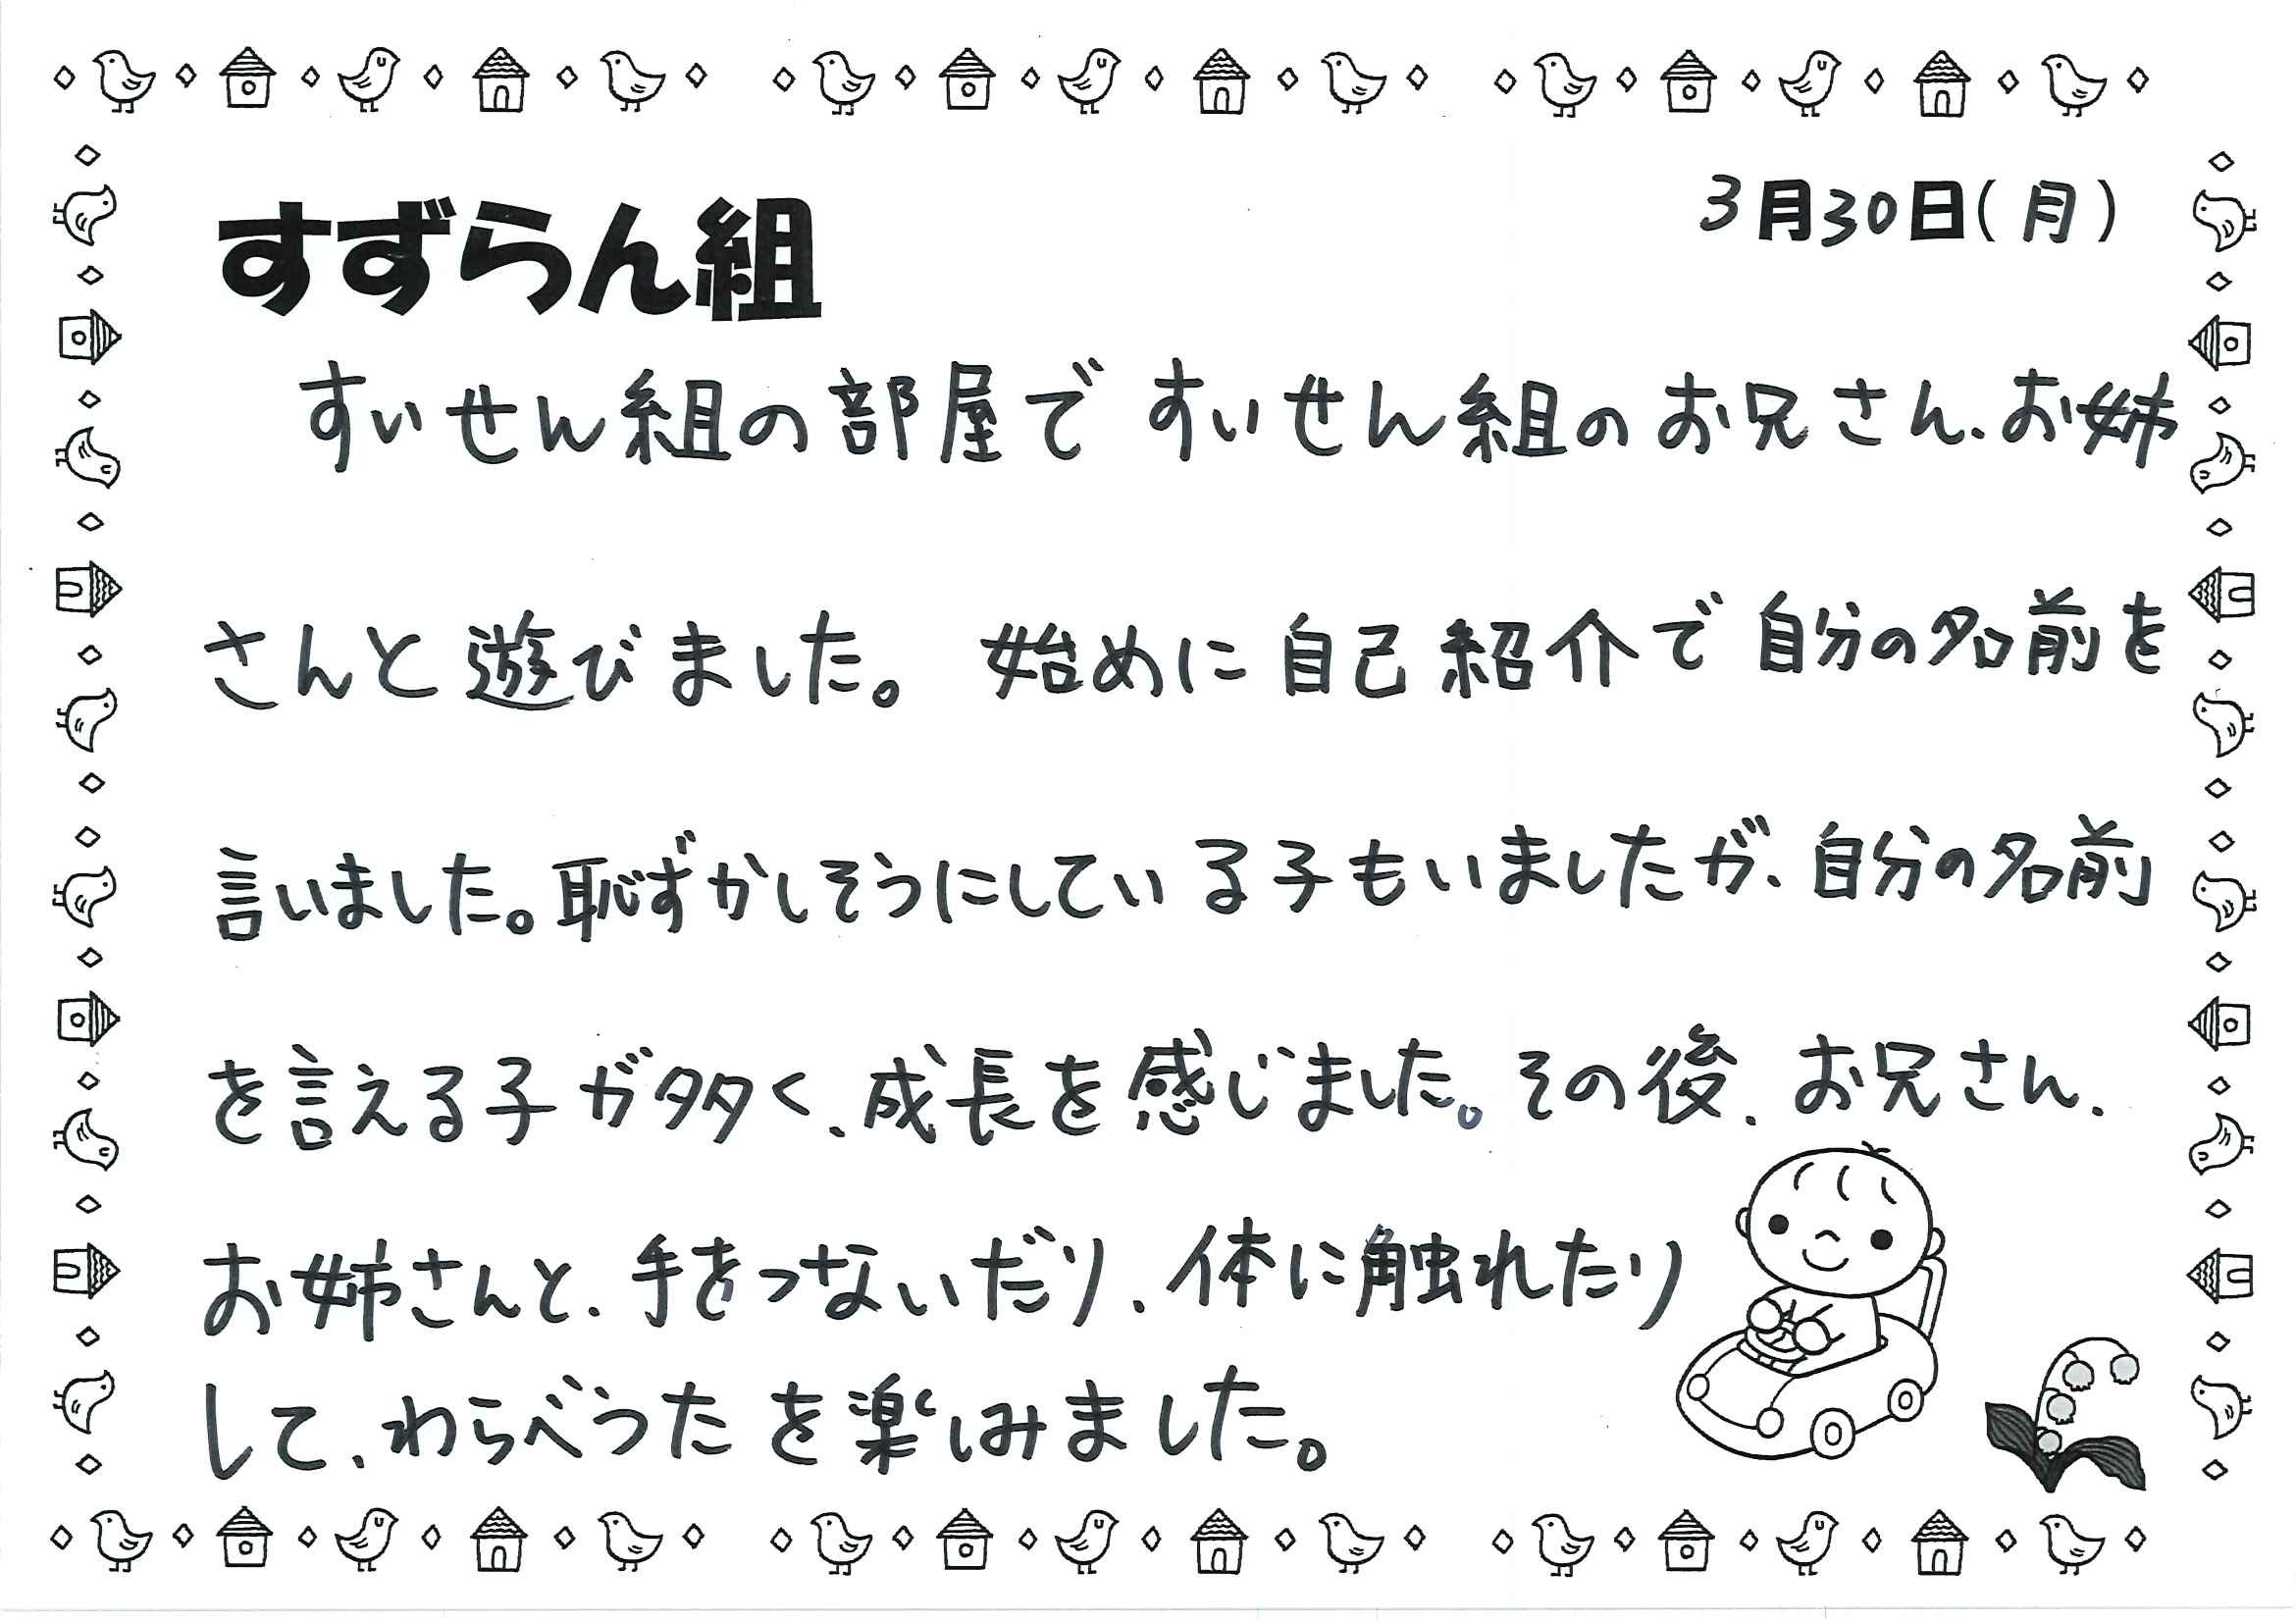 すずらん組
3月30日(月)
すいせん組の部屋ですいせん組のお兄さん、お姉
さんと遊びました。始めに自己紹介で自分の名前を
言いました。恥ずかしそうにしている子もいましたが、自分の名前
を言える子が多く、成長を感じました。その後、お兄さん、
お姉さんと、手をつないだり、体に触れたり
して、わらべうたを楽しみました。